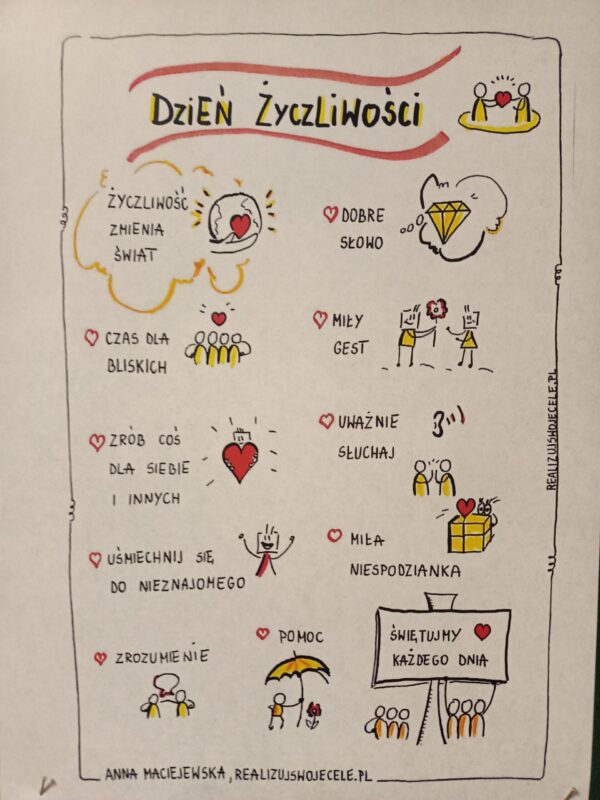 DZIEŃ ŻYCZLIWOŚCI
ŻYCZLIWOŚĆ
ZMIENIA
ŚWIAT
DOBRE
SŁOWO
CZAS DLA
BLISKICH
MIŁY
GEST
ZRÓB COŚ
DLA SIEBIE
I INNYCH
UWAŻNIE
SŁUCHAJ
UŚMIECHNIJ SIĘ
DO NIEZNAJOMEGO
MIŁA
NIESPODZIANKA
ZROZUMIENIE
POMOC
ŚWIĘTUJMY
KAŻDEGO DNIA
REALIZUJSWOJECELE.PL
ANNA MACIEJEWSKA, REALIZUJSWOJECELE.PL